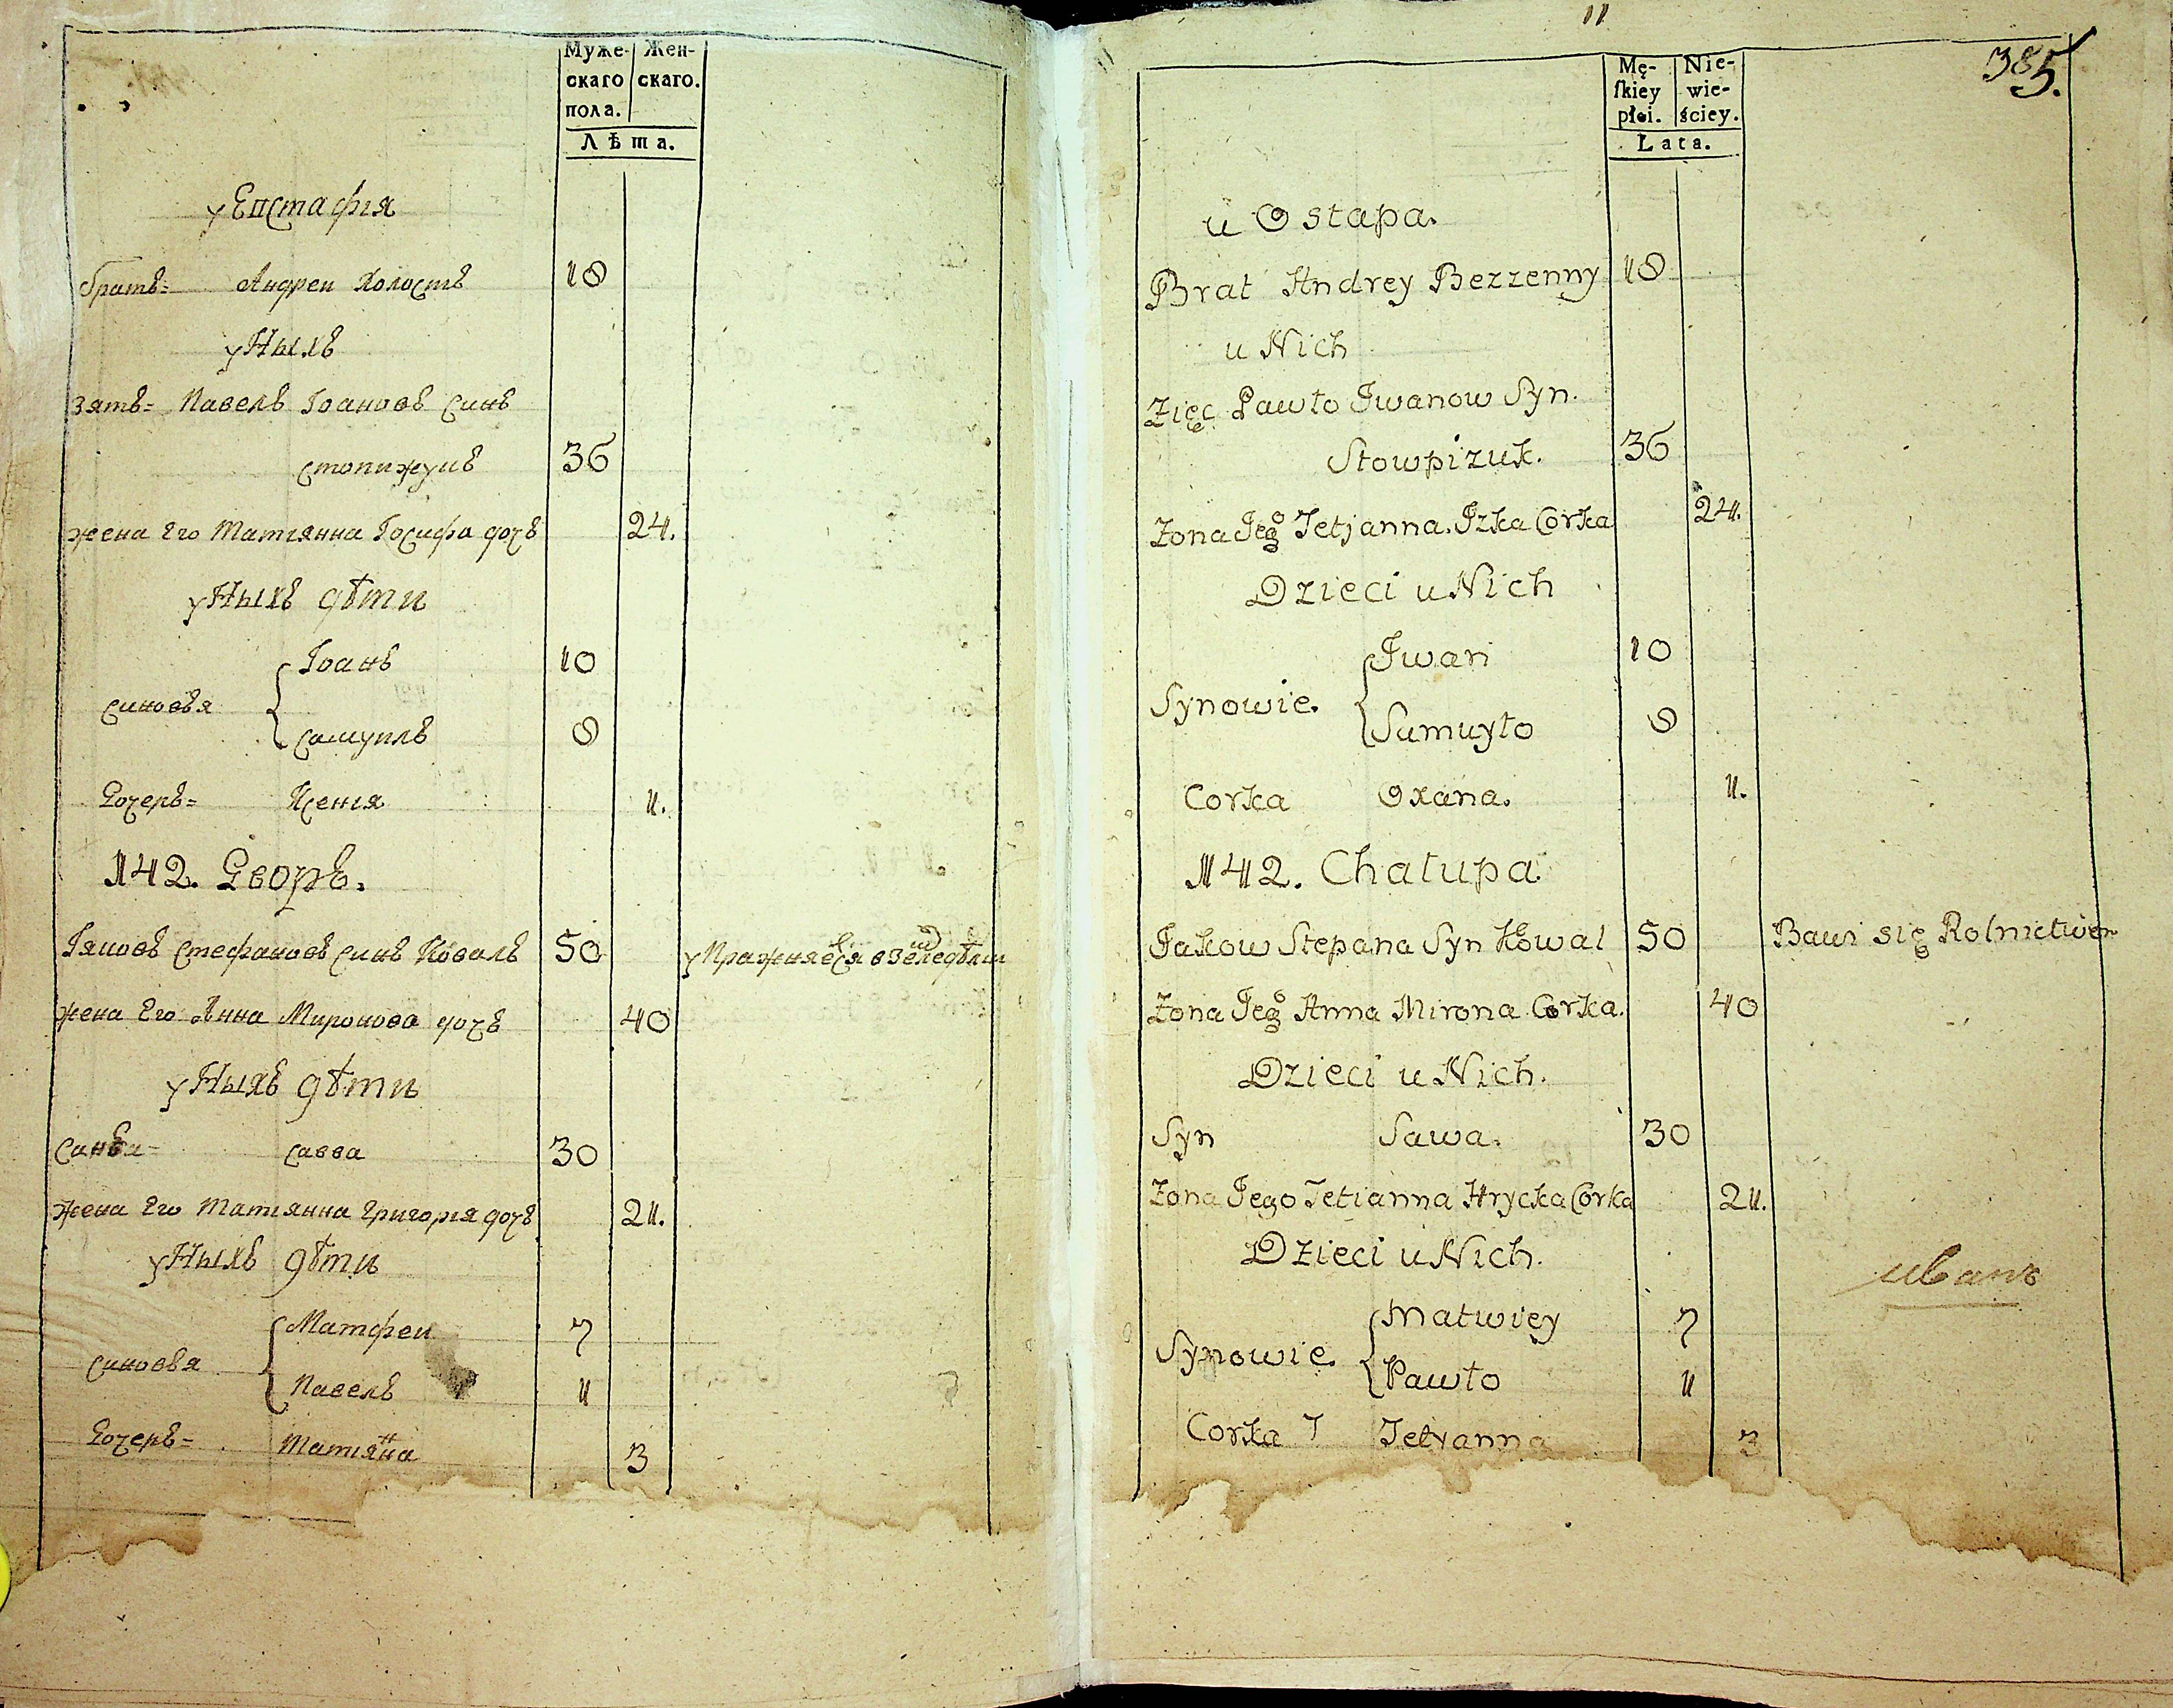 Муже-
скаго
пола.
Жен-
скаго.
Лѣта.
у Евстафія
братъ= Андреи Холостъ 18
у Ныхъ
зять= Павелъ Іоановъ Синъ
Столпижукъ 36
жена Его Татіянна Іосифа дочь 24.
у Ныхъ дѣти
Синовья { Іоанъ 10
Самуилъ 8
Дочерь= Ксенія 11.
142. Дворъ.
Іяковъ Стефановъ Синъ Коваль 50
жена Его Анна Миронова дочь 40
у Ныхъ дѣти
Савва 30
жена Его Татіянна Григорія дочь 21.
у Ныхъ дѣти
Синовья { Матфеи 7
Павелъ 1
Дочерь= Татіянна 3
11
385.
Mę-
ſkiey
płci.
Nie-
wie-
ściey.
Lata.
u Ostapa.
Brat Andrey Bezzenny 18
u Nich
Zięc Pawło Jwanow Syn.
Stowpizuk. 36
Zona Jego Tetjanna. Jzka Corka 24.
Dzieci u Nich
Synowie. { Jwan 10
Samuyło 8
Corka Oxana. 11.
142. Chałupa
Jakow Stepana Syn Kowal 50 Bawi się Rolnictwem
Zona Jego Anna Mirona Corka. 40
Dzieci u Nich.
Syn Sawa. 30
Zona Jego Tetianna Hrycka Corka 21.
Dzieci u Nich.
Иванъ
Synowie. { Matwiey 7
Pawło 1
Corka Tetyanna 3